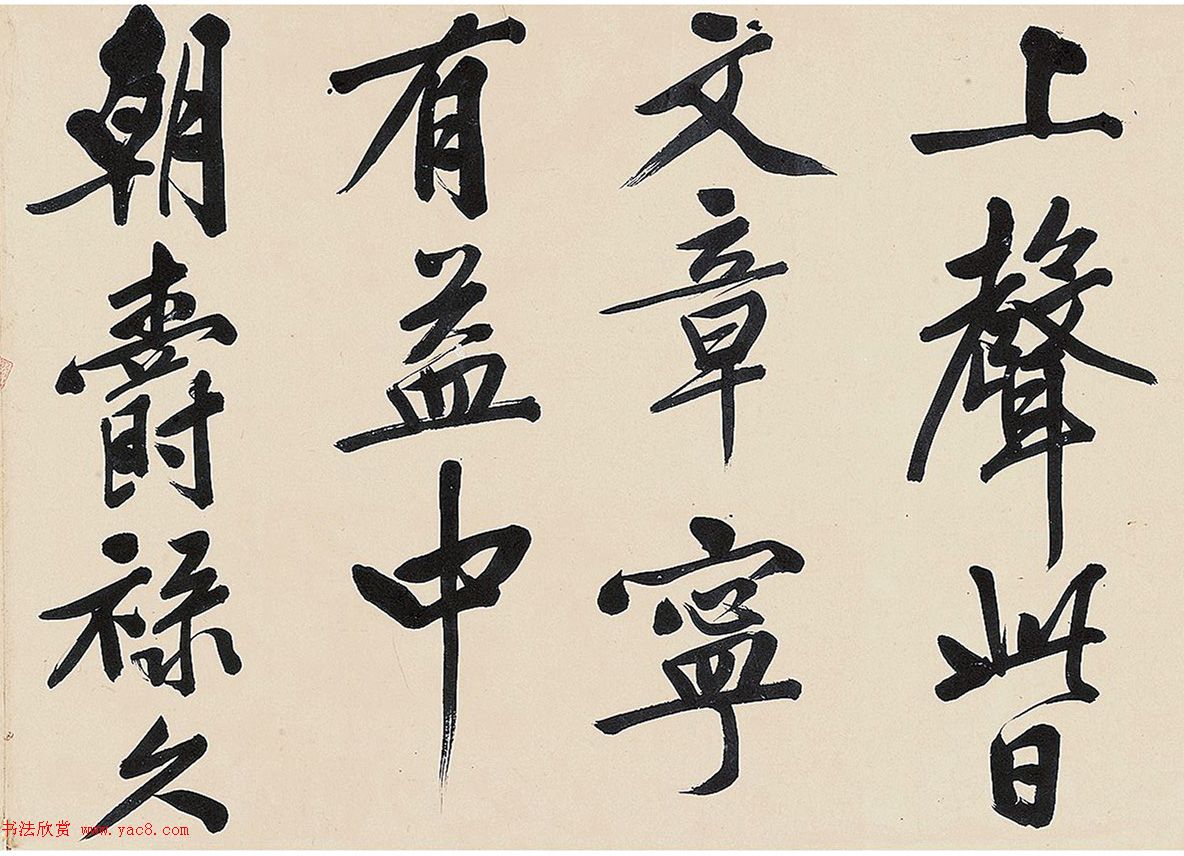 上聲此日
文章寧
有益中
朝爵祿久
书法欣赏 www.yac8.com